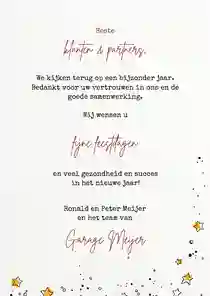 Beste
klanten & partners,
We kijken terug op een bijzonder jaar.
Bedankt voor uw vertrouwen in ons en de
goede samenwerking.
Wij wensen u
fijne feestdagen
en veel gezondheid en succes
in het nieuwe jaar!
Ronald en Peter Meijer
en het team van
Garage Meijer